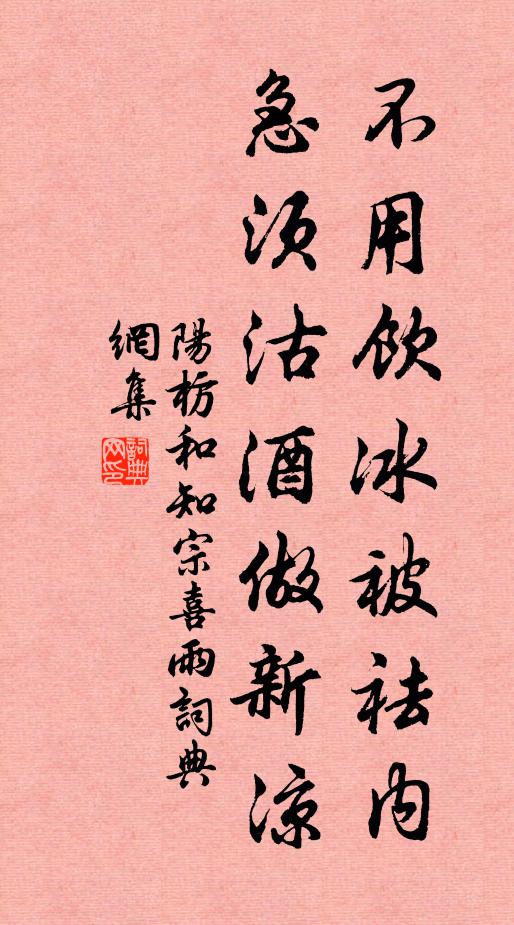 不用飲冰被祛内
急須沽酒做新涼
陽枋和知宗喜雨詞典
網集
詞典
网印